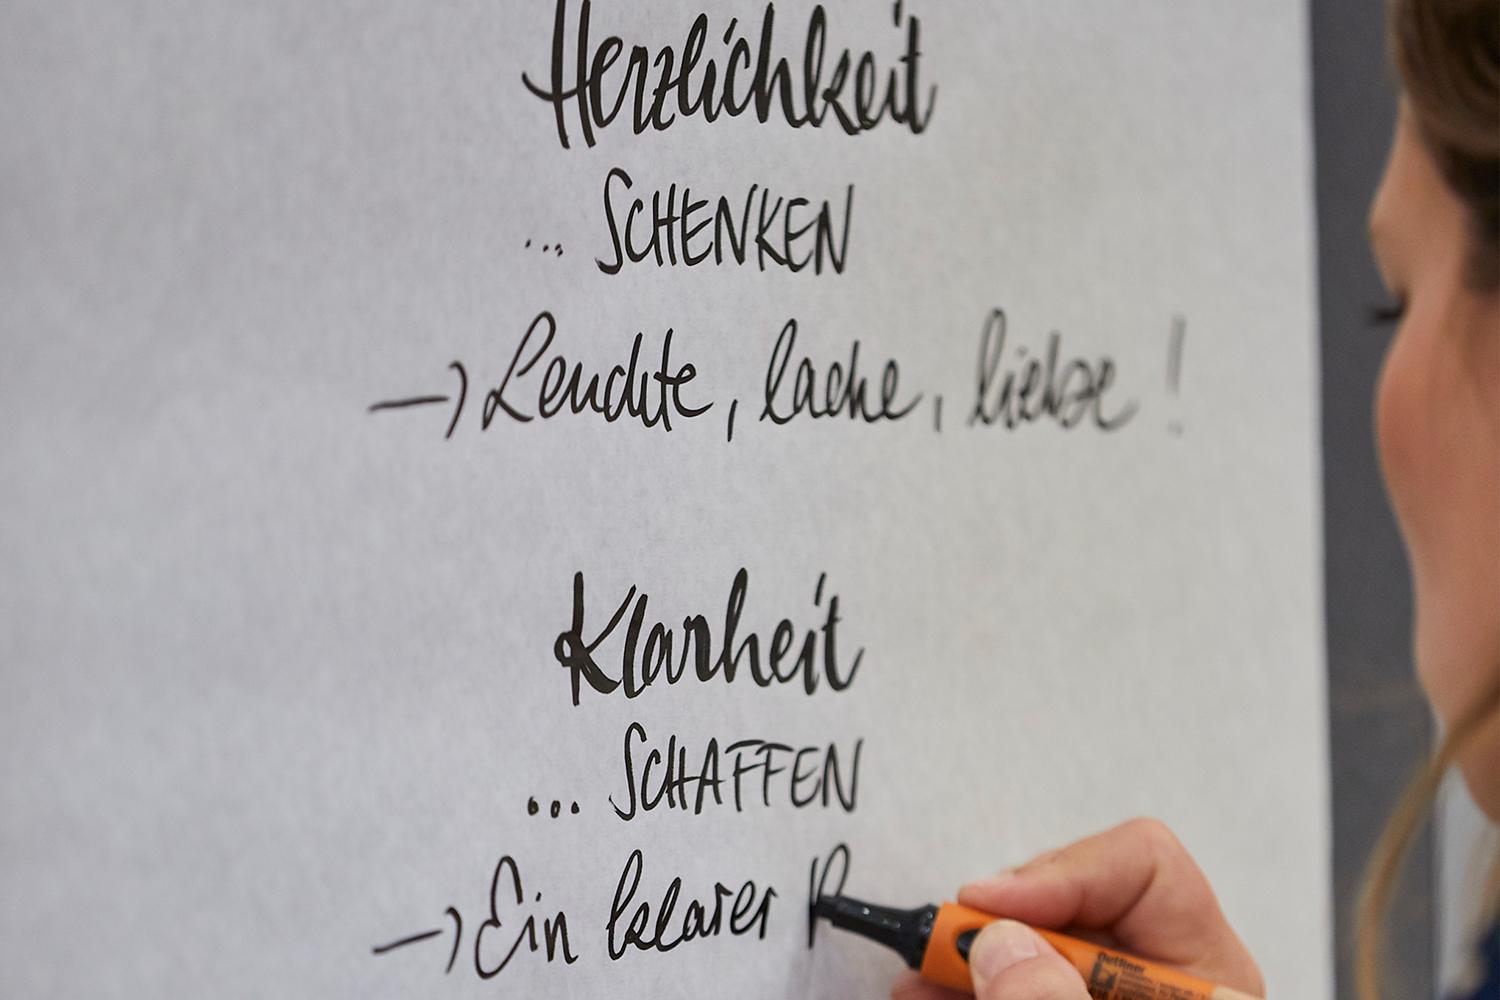 Herzlichkeit
... SCHENKEN
→ Leuchte, lache, liebe!
Klarheit
... SCHAFFEN
→ Ein klarer
Outliner